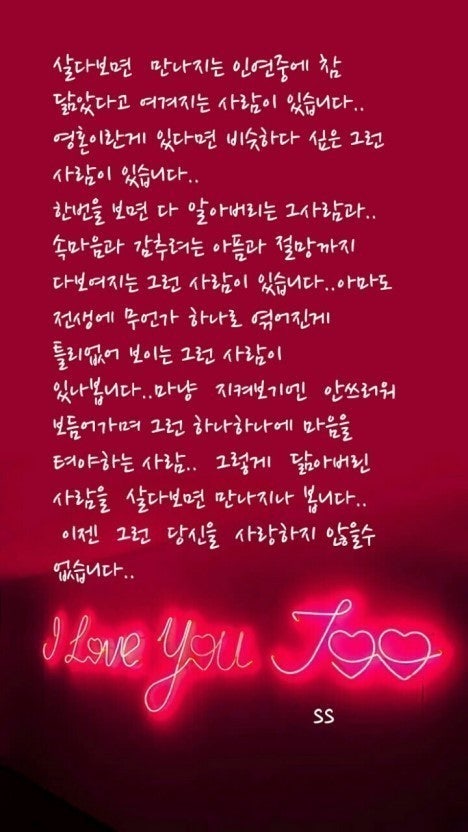 살다보면 만나지는 인연중에 참
닮았다고 여겨지는 사람이 있습니다..
영혼이란게 있다면 비슷하다 싶은 그런
사람이 있습니다..
한번을 보면 다 알아버리는 그사람과..
속마음과 감추려는 아픔과 절망까지
다보여지는 그런 사람이 있습니다..아마도
전생에 무언가 하나로 엮어진게
틀리없어 보이는 그런 사람이
있나봅니다..마냥 지켜보기엔 안쓰러워
보듬어가며 그런 하나하나에 마음을
텨야하는 사람.. 그렇게 닮아버린
사람을 살다보면 만나지나 봅니다..
이젠 그런 당신을 사랑하지 않을수
없습니다..
I Love You Too
SS